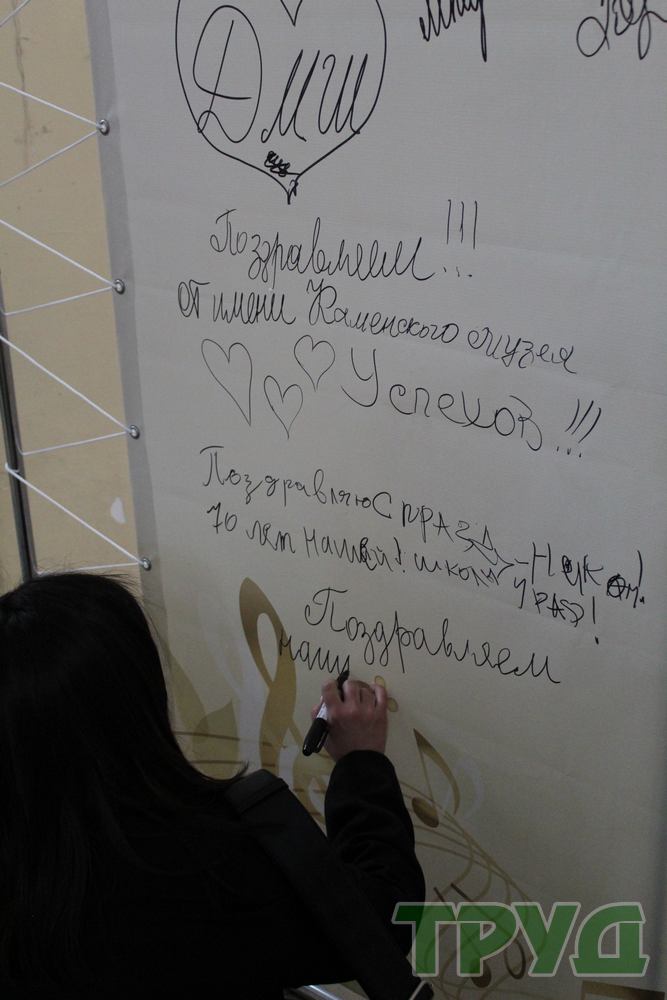 ДМШ
Поздравляем!!!
от имени Каменского музея
Успехов!!!
Поздравляю с празд-ником!
70 лят нашей! школы УРАЗ!
Поздравляем
нашу
ТРУД